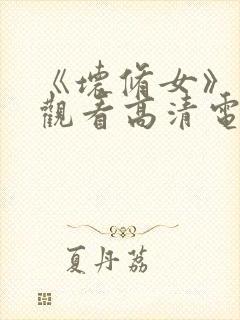 《壞脩女》
觀看高清電
夏丹荔